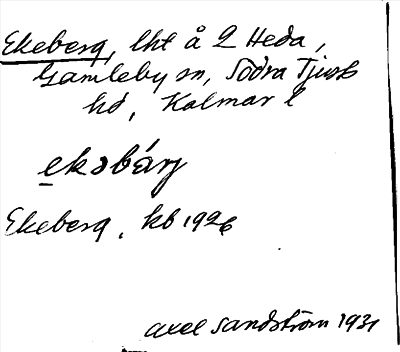 Ekeberg, lht å 2 Heda,
Gamleby sn, Södra Tjust
hd, Kalmar l
ekəbárj
Ekeberg, kb 1926
Axel Sandström 1931